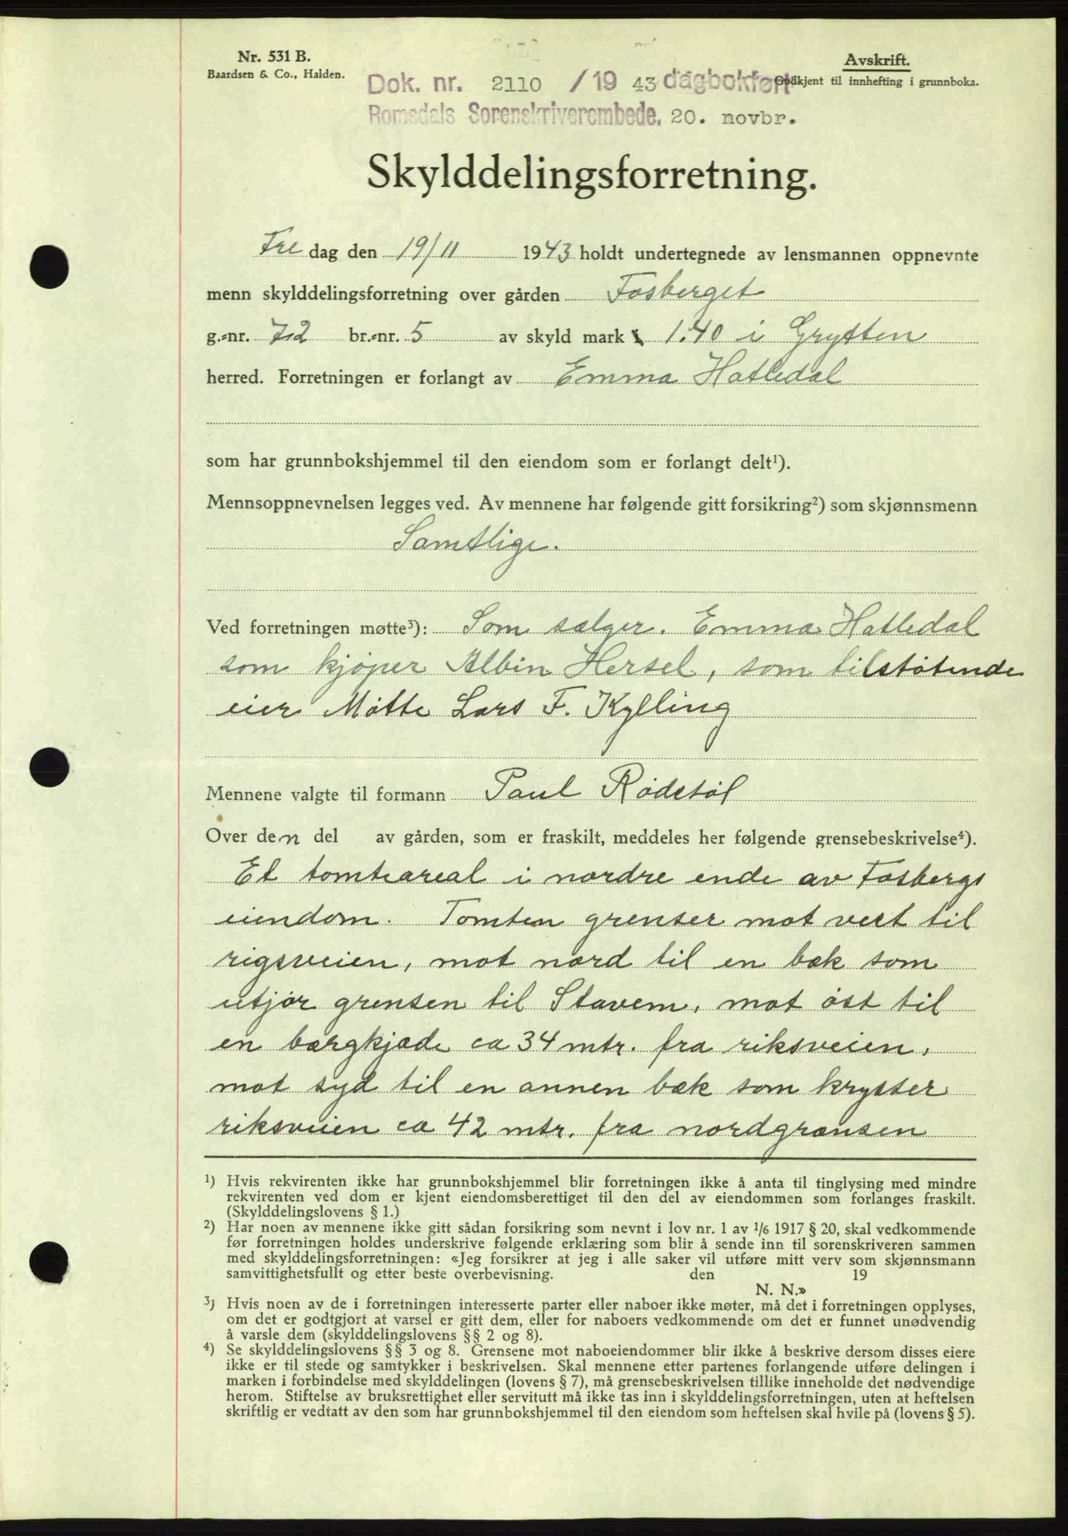 Nr. 531 B.
Baardsen & Co., Halden.
Avskrift.
Godkjent til innhefting i grunnboka.
Dok. nr. 2110 /19 43 dagbokført
Romsdals Sorenskriverembede. 20. novbr.
Skylddelingsforretning.
Fre dag den 19/11 1943 holdt undertegnede av lensmannen oppnevnte
menn skylddelingsforretning over gården Fosberget
g.-nr. 72 br.-nr. 5 av skyld mark 1.40 i Grytten
herred. Forretningen er forlangt av Emma Hatledal
som har grunnbokshjemmel til den eiendom som er forlangt delt¹).
Mennsoppnevnelsen legges ved. Av mennene har følgende gitt forsikring²) som skjønnsmenn
Samtlige.
Ved forretningen møtte³): Som sælger. Emma Hatledal
som kjøper Albin Hersel, som tilstøtende
eier Møtte Lars F. Kylling
Mennene valgte til formann Paul Rødstøl
Over den del av gården, som er fraskilt, meddeles her følgende grensebeskrivelse⁴).
Et tomteareal i nordre ende av Fosbergs
eiendom. Tomten grenser mot vest til
rigsveien, mot nord til en bæk som
utjør grensen til Stavem, mot øst til
en bærgkjæde ca 34 mtr. fra riksveien,
mot syd til en annen bæk som krysser
riksveien ca 42 mtr. fra nordgrænsen
¹) Hvis rekvirenten ikke har grunnbokshjemmel blir forretningen ikke å anta til tinglysing med mindre
rekvirenten ved dom er kjent eiendomsberettiget til den del av eiendommen som forlanges fraskilt.
(Skylddelingslovens § 1.)
²) Har noen av mennene ikke gitt sådan forsikring som nevnt i lov nr. 1 av 1/6 1917 § 20, skal vedkommende
før forretningen holdes underskrive følgende erklæring som blir å sende inn til sorenskriveren sammen
med skylddelingsforretningen: «Jeg forsikrer at jeg i alle saker vil utføre mitt verv som skjønnsmann
samvittighetsfullt og etter beste overbevisning. den 19
N. N.»
³) Hvis noen av de i forretningen interesserte parter eller naboer ikke møter, må det i forretningen opplyses,
om det er godtgjort at varsel er gitt dem, eller for naboers vedkommende om det er funnet unødvendig
å varsle dem (skylddelingslovens §§ 2 og 8).
⁴) Se skylddelingslovens §§ 3 og 8. Grensene mot naboeiendommer blir ikke å beskrive dersom disses eiere
ikke er til stede og samtykker i beskrivelsen. Skal mennene etter partenes forlangende utføre delingen i
marken i forbindelse med skylddelingen (lovens § 7), må grensebeskrivelsen tillike inneholde det nødvendige
herom. Stiftelse av bruksrettighet eller servitutt må ikke tas inn i skylddelingsforretningen, uten at heftelsen
skriftlig er vedtatt av den som har grunnbokshjemmel til den eiendom som heftelsen skal hvile på (lovens § 5).